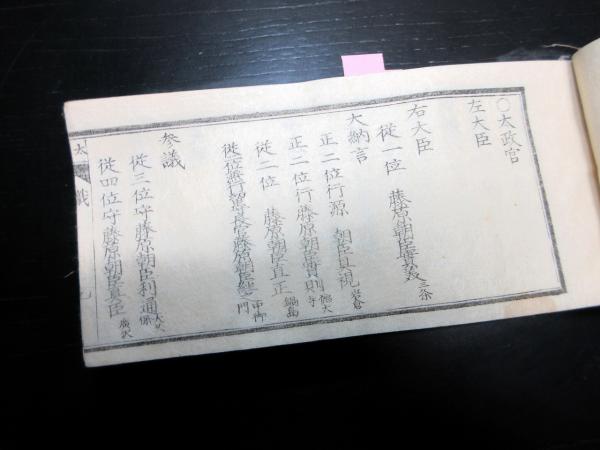 ○太政官
左大臣
右大臣
從一位 藤原朝臣實美 三条
大納言
正二位行源 朝臣具視 岩倉
正二位行藤原朝臣實則 德大寺
從二位 藤原朝臣直正 鍋島
藤原朝臣經之 中御門
參議
從三位守藤原朝臣利通 大久保
從四位守藤原朝臣真臣 廣沢
太